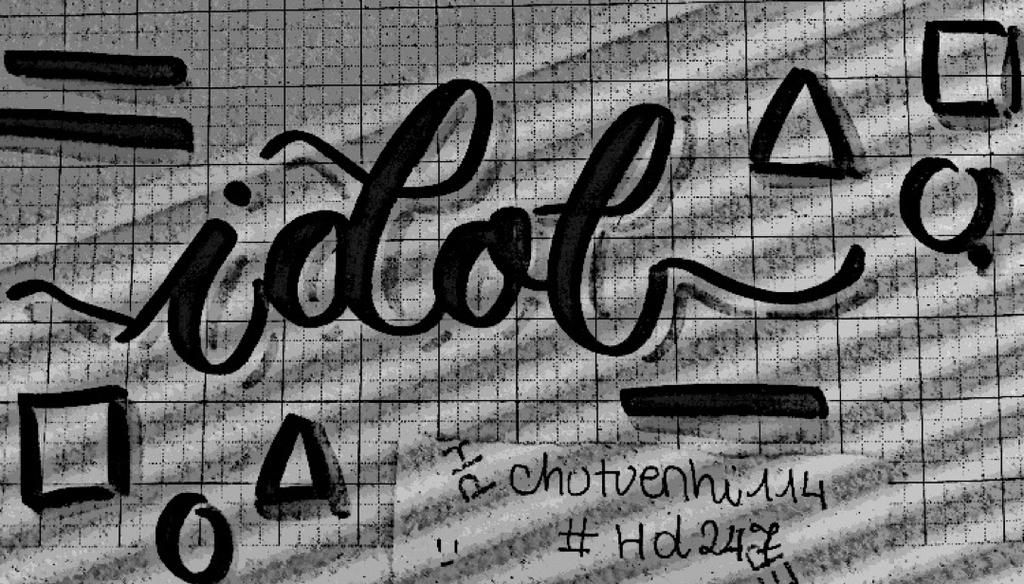 idol
chotvenhi114
# Hd247